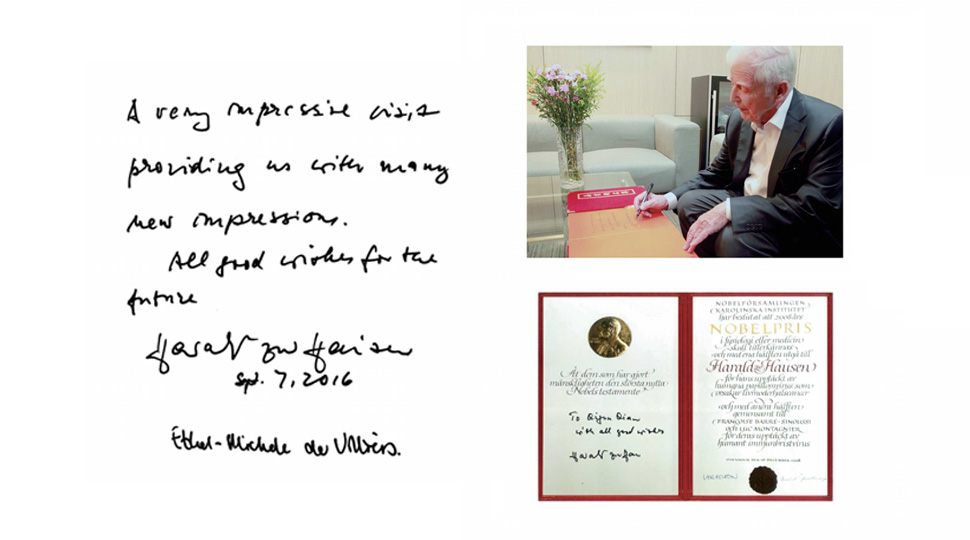 A very impressive visit
providing us with many
new impressions.
All good wishes for the
future
Harald zur Hausen
Spt. 7, 2016
Ethel-Michele de Villiers.
Åt dem som har gjort
mänskligheten den största nytta
Nobels testamente
with all good wishes
NOBELFÖRSAMLINGEN
KAROLINSKA INSTITUTET
har beslutat att 2008 års
NOBELPRIS
i fysiologi eller medicin
skall tillerkännas
och med ena hälften utgå till
Harald zur Hausen
för hans upptäckt av
humana papillomvirus som
orsakar livmoderhalscancer
och med andra hälften
gemensamt till
FRANÇOISE BARRÉ-SINOUSSI
och LUC MONTAGNIER
för deras upptäckt av
humant immunbristvirus